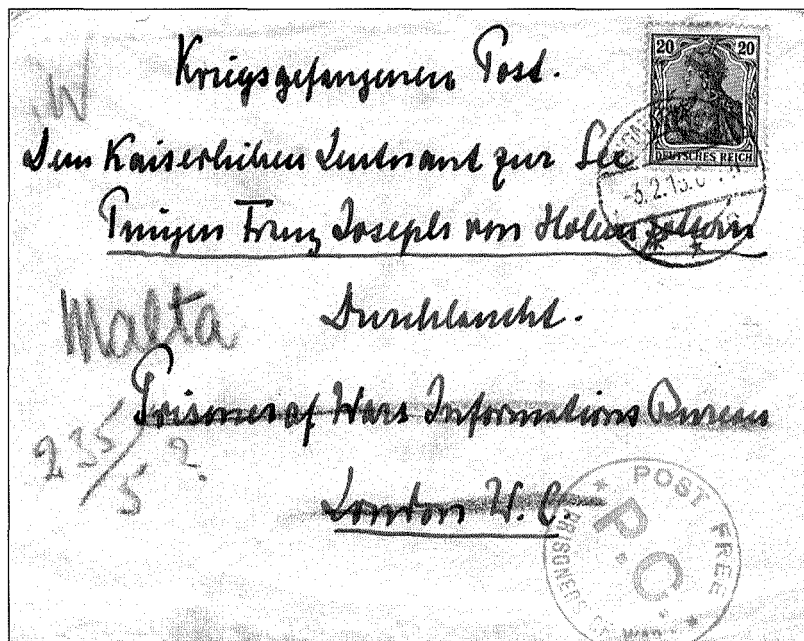 Kriegsgefangenen Post.
20 20
DEUTSCHES REICH
Dem Kaiserlichen Leutnant zur See
Prinzen Franz Joseph von Hohenzollern
Malta
Durchlaucht.
Prisoner of Wars Informations Bureau
235/5 ?
London W. C.
POST FREE
P.C.
PRISONERS